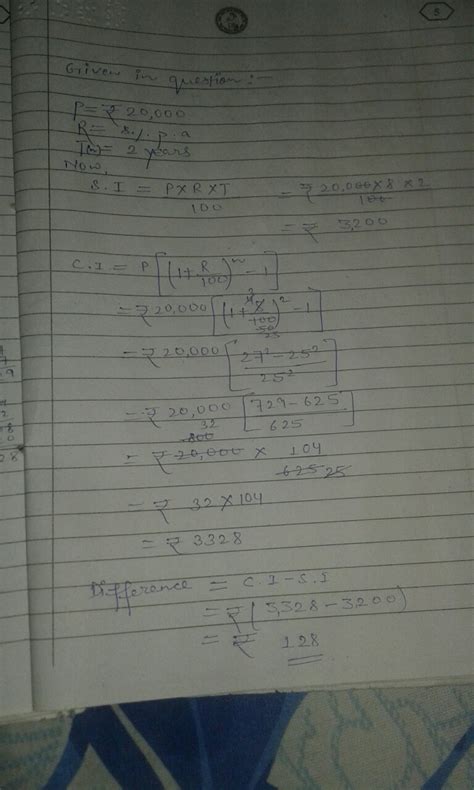 5
Given in question:-
P= ₹ 20,000
R= 8 % p.a
T(n)= 2 years
Now,
S.I = P×R×T/100 = ₹ 20,000×8×2/100
= ₹ 3,200
C.I = P[(1+R/100)^n -1]
= ₹20,000[(1+8/100)^2 -1]
= ₹20,000[27²-25²/25²]
= ₹ 20,000[729-625/625]
= ₹ 20,000 × 104/625 25
= ₹ 32×104
= ₹ 3328
Difference = C.I-S.I
= ₹(3,328-3,200)
= ₹ 128